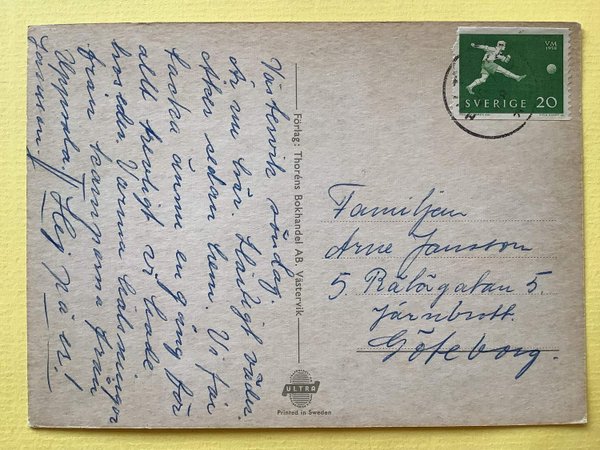 Västervik söndag.
Är nu här. Härligt väder
åker sedan hem. Vi får
tacka ännu en gång för
allt trevligt vi hade
hos eder. Varma hälsningar
från
Uppsala Hej på er!
Förlag: Thoréns Bokhandel AB, Västervik
VM
1958
SVERIGE 20
Familjen
Arne Jansson
5. Rålögatan 5.
Järnbrott.
Göteborg.
ULTRA
Printed in Sweden